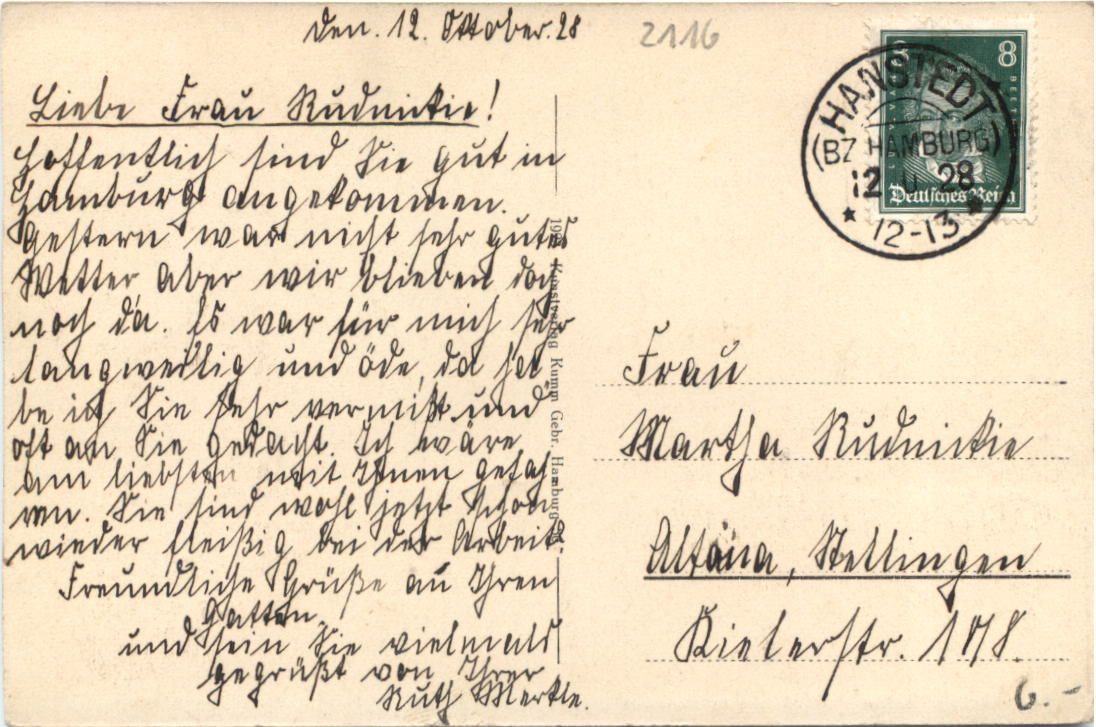 Den. 12. Oktober. 28
2116
Liebe Frau Rudnickie!
Hoffentlich sind Sie gut in
Hamburg angekommen.
Gestern war nicht sehr gutes
Wetter aber wir blieben doch
noch da. Es war für mich sehr
langweilig und öde, da ha-
be ich Sie sehr vermißt und
oft an Sie gedacht. Ich wäre
am liebsten mit Ihnen gefah-
ren. Sie sind wohl jetzt schon
wieder fleißig bei der Arbeit.
Freundliche Grüße an Ihren
Gatten.
und sein Sie vielmals
gegrüßt von Ihrer
Ruth Merkle.
Kunstverlag Kumm Gebr. Hamburg
8 8
Deutsches Reich
HANSTEDT
(BZ HAMBURG)
12 28
* 12-13 *
Frau
Martha Rudnickie
Altona, Stellingen
Kielerstr. 178.
6.-